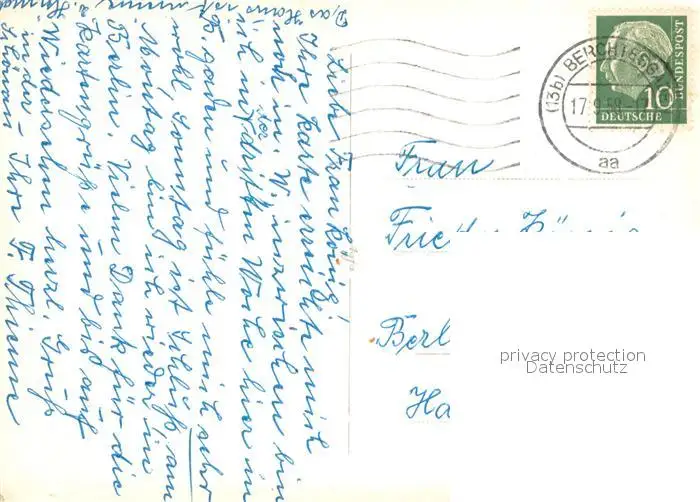 Das Haus ist immer
Liebe Frau König!
Ihre Karte erreichte mich
noch in W. inzwischen bin
ich in der dritten Woche hier in
B'gaden und fühle mich sehr
wohl Sonntag ist Schluß am
Montag bin ich wieder in
Berlin. Vielen Dank für die
Kartengrüße und bis auf
Wiedersehn herzl. Grüß
in der
Ihre F. Thieme
(13b) BERCHTESGA
17.9.58
aa
10
DEUTSCHE
BUNDESPOST
Frau
Frie König
Berl
Ha
privacy protection
Datenschutz